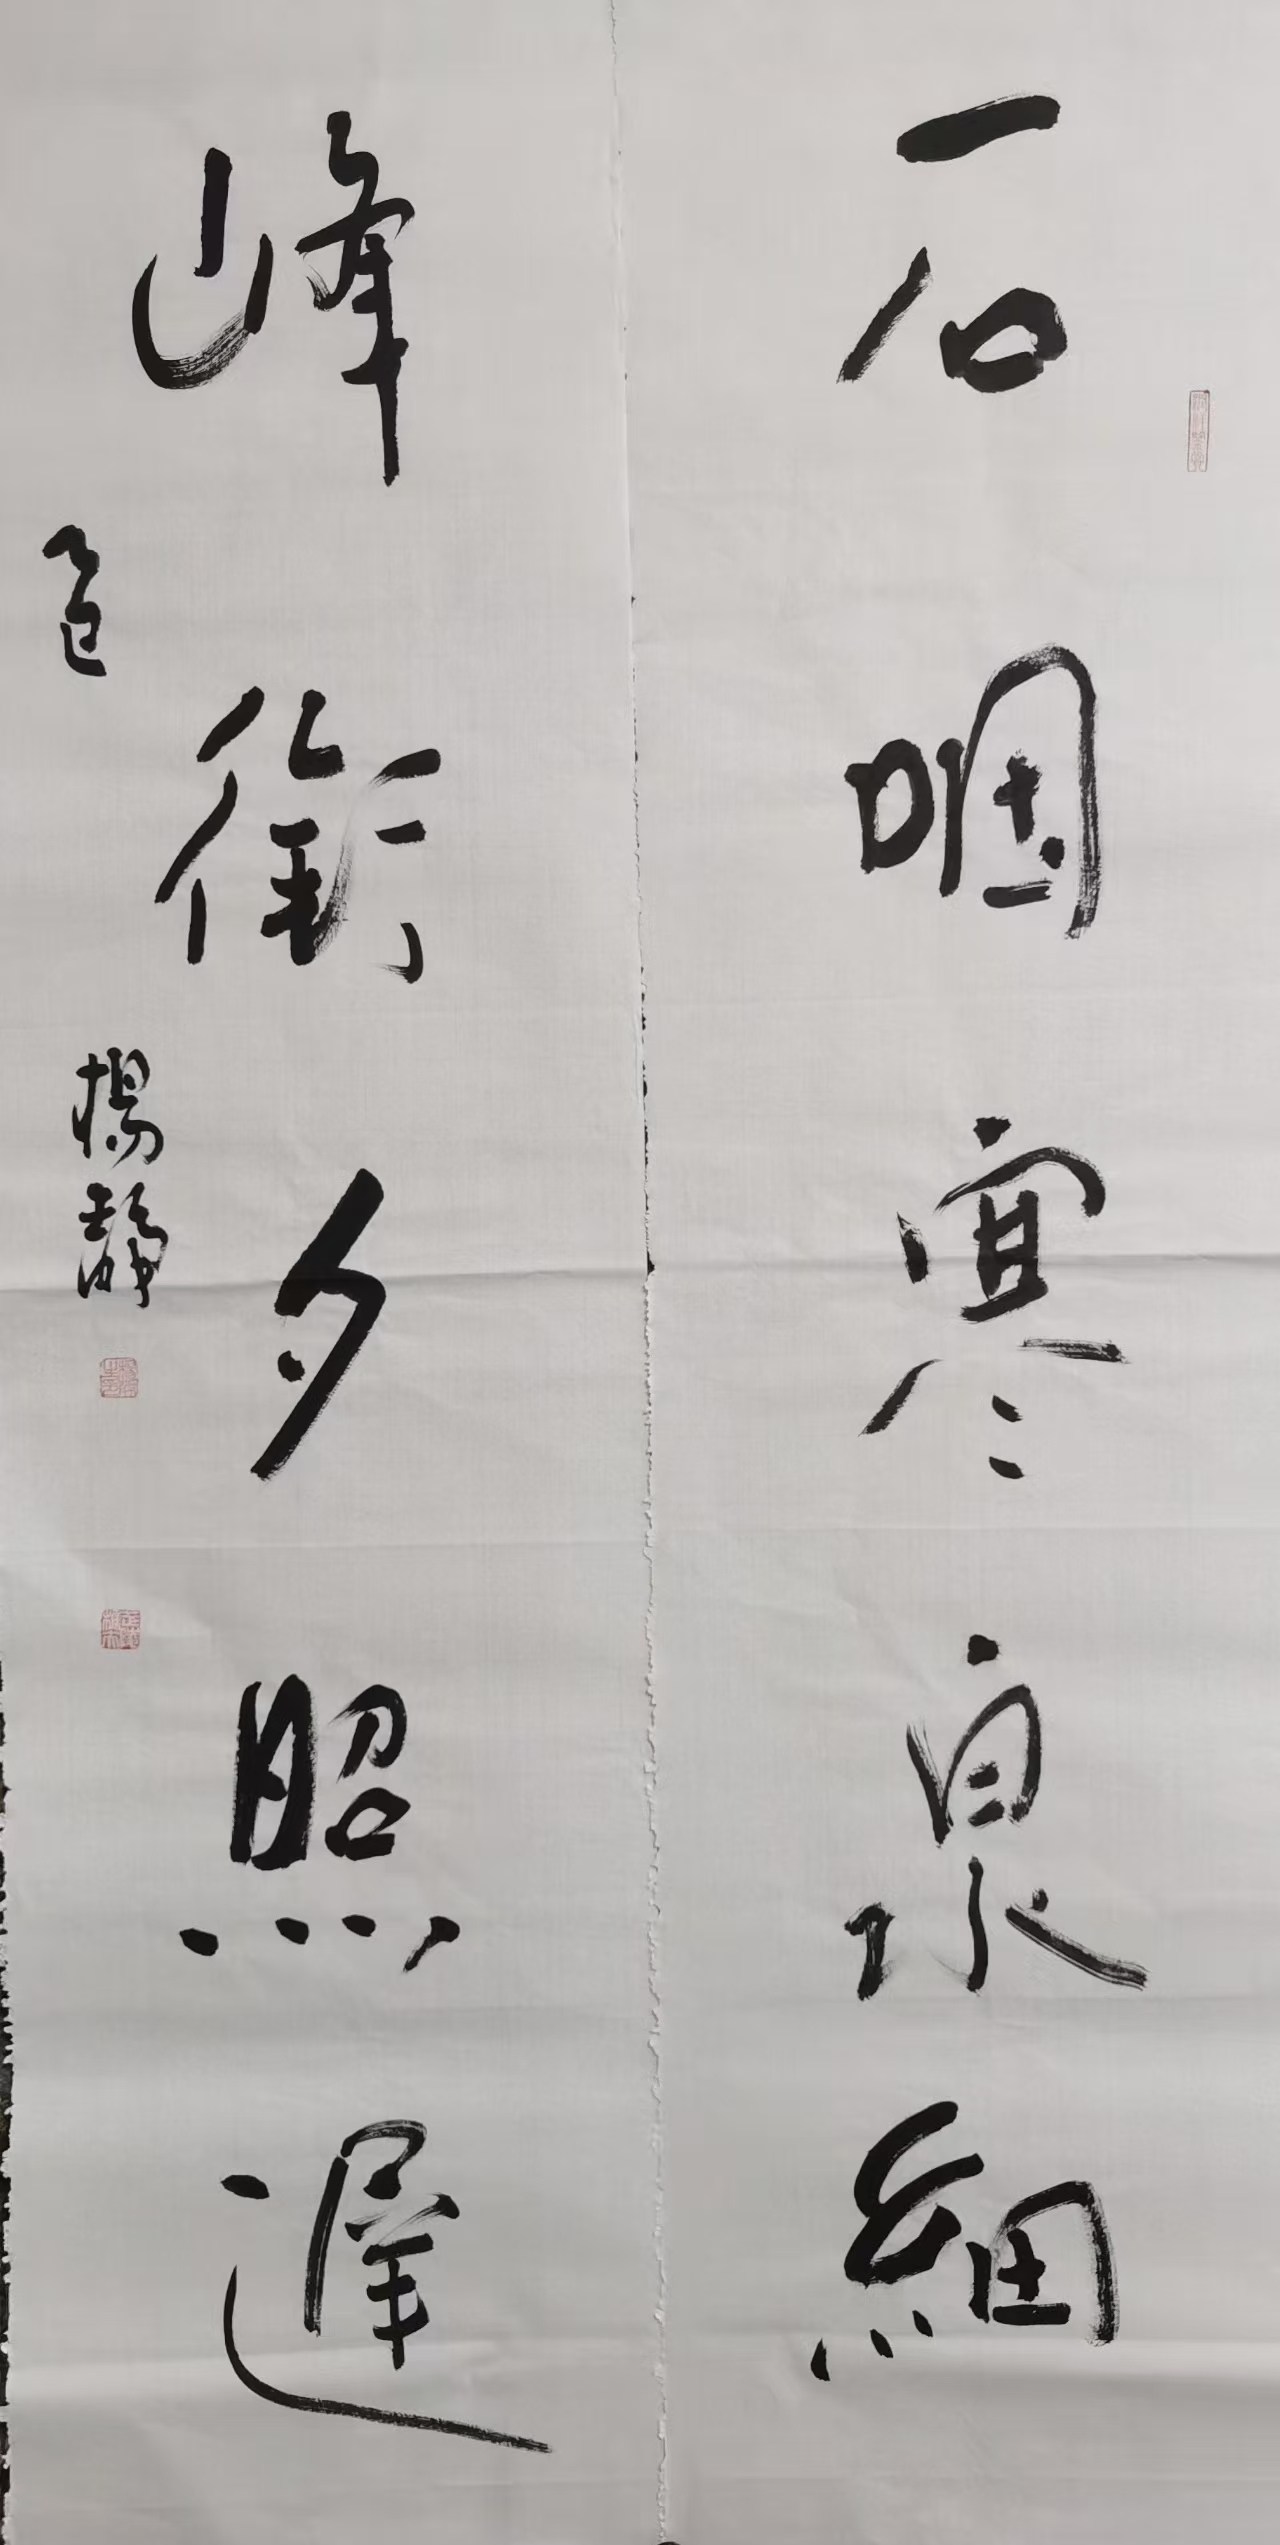 石咽寒泉細
峰銜夕照遲
楊靜